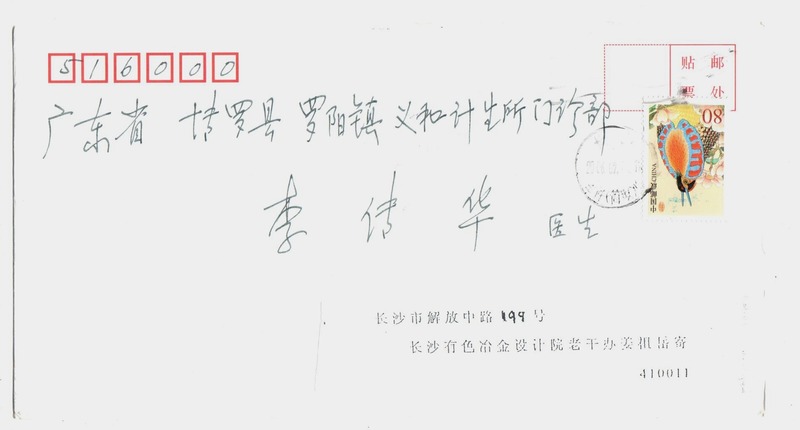 516000
贴 邮
票 处
广东省 博罗县 罗阳镇 义和计生所门诊部
80
中国邮政 CHINA
李 华 医生
长沙市解放中路199号
长沙有色冶金设计院老干办姜祖岳寄
410011